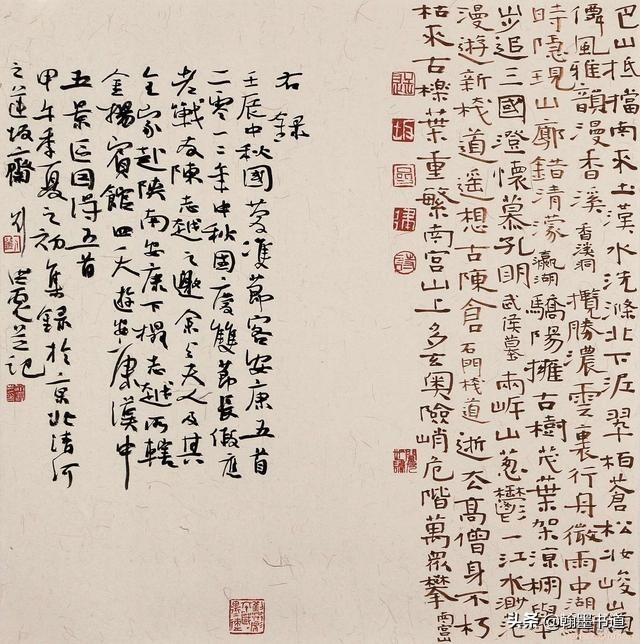 巴山抵擋南來土漢水洗滌北下泥翠柏蒼松妝峻山
儒風雅韻漫香溪 香溪洞 攬勝濃雲裏行舟微雨中湖
時隱現山廓錯清濛 瀛湖 驕陽擁古樹茂葉架涼棚舉
步追三國澄懷慕孔明 武侯墓 兩岸山蔥鬱一江水渺
漫遊新棧道遙想古陳倉 石門棧道 逝去高僧身不朽
枯來古樸葉重繁南宮山上多玄奧險峭危階萬眾攀
右錄
壬辰中秋國慶雙節客安康五首
二零一二年中秋國慶雙節長假應
老戰友陳志越之邀余與夫人及其
全家赴陝南安康下榻志越所轄
金揚賓館四天遊安康漢中
五景區因得五首
甲午季夏之初集錄於京北清河
之蓮坂齋 劉洪彪並記
头条 @翰墨书道